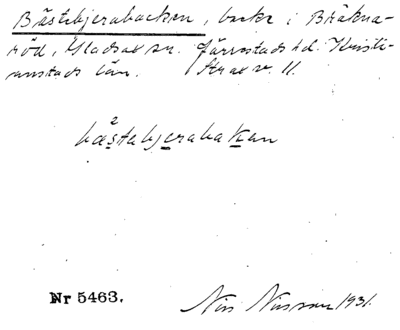 Bästebjerabacken, backe i Bräkna-
röd, Gladsax sn. Järrestads hd. Kristi-
anstads län. Strax v. 11.
2
bästabjerabakan
Nr 5463.
Nils Nilsson 1931.